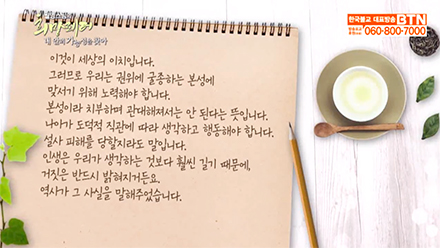 희망의 메아리
내 안의 가능성을 찾아
한국불교 대표방송 BTN
060-800-7000
이것이 세상의 이치입니다.
그러므로 우리는 권위에 굴종하는 본성에
맞서기 위해 노력해야 합니다.
본성이라 치부하며 관대해져서는 안 된다는 뜻입니다.
나아가 도덕적 직관에 따라 생각하고 행동해야 합니다.
설사 피해를 당할지라도 말입니다.
인생은 우리가 생각하는 것보다 훨씬 길기 때문에,
거짓은 반드시 밝혀지거든요.
역사가 그 사실을 말해주었습니다.